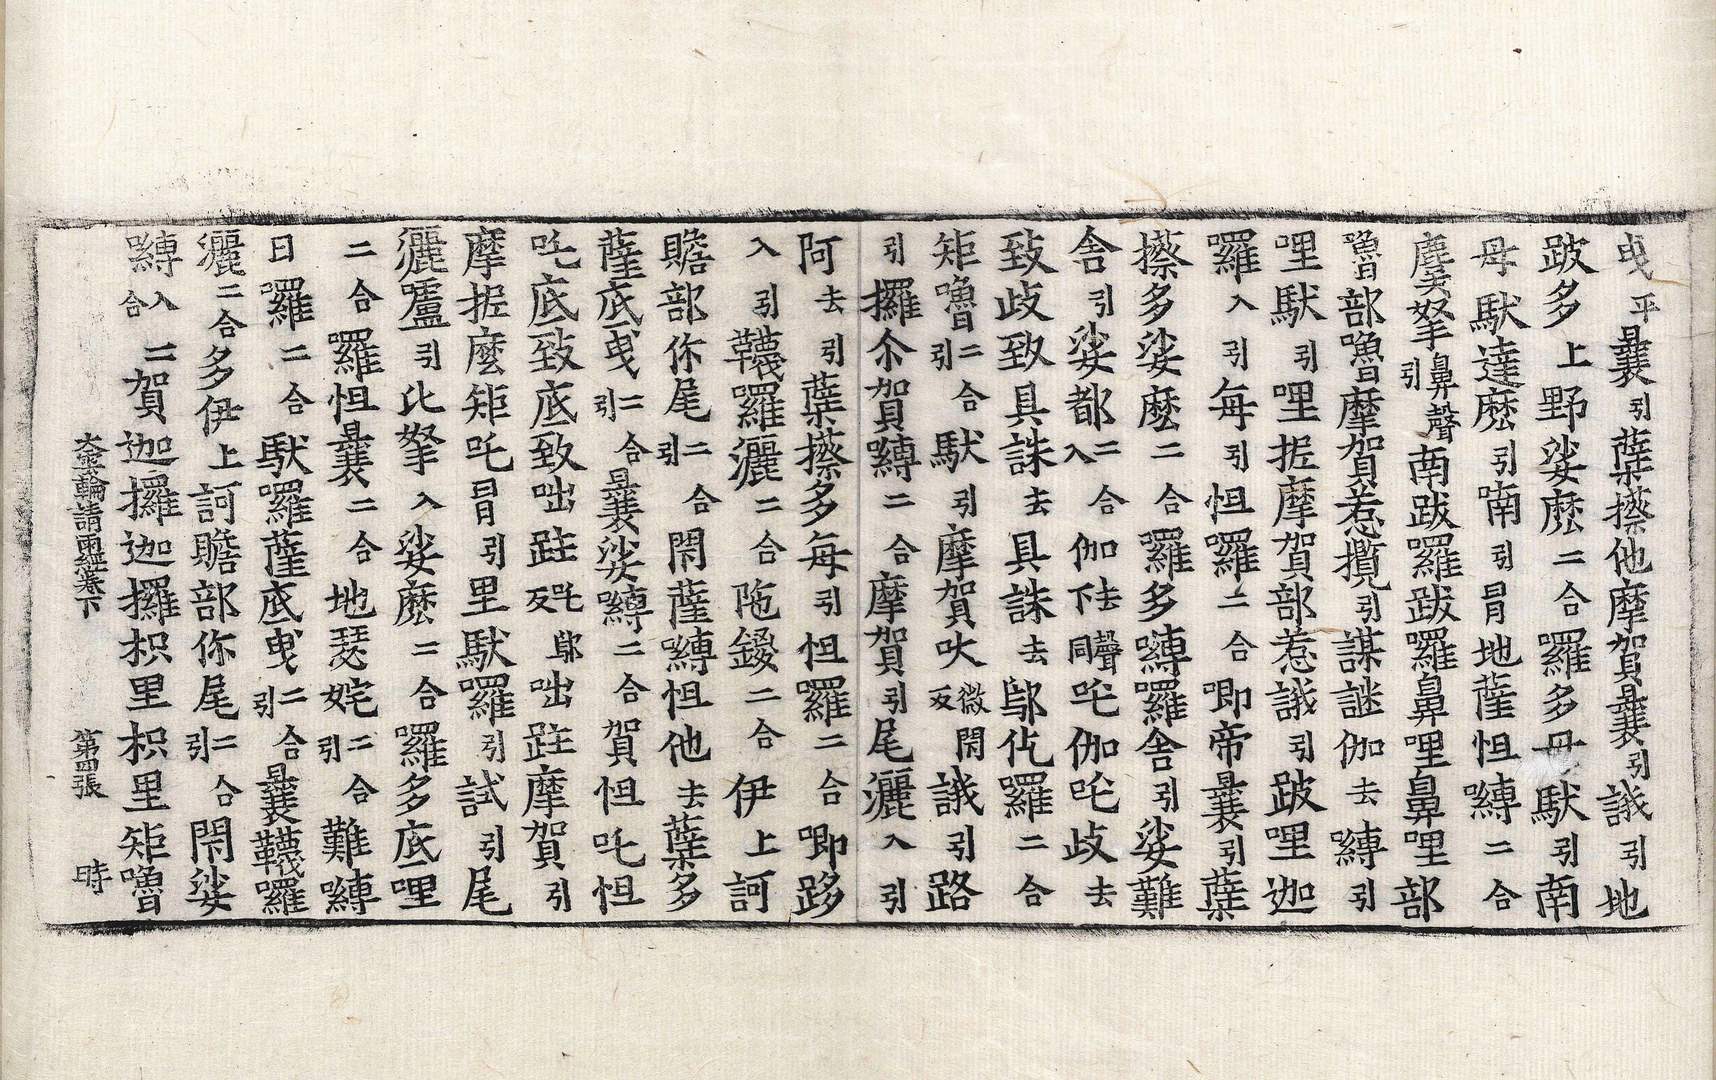 曳平曩引蘖搽他摩賀曩引誐引地
跛多上野娑麼二合羅多母馱引南
母馱達麼引喃引冐地薩怛嚩二合
麌拏鼻聲引南跋羅跋羅鼻哩鼻哩部
嚕部嚕摩賀惹攬引謀謎伽去嚩引
哩馱引哩抳摩賀部惹誐引跛哩迦
羅入引每引怛羅二合唧帝曩引蘖
搽多娑麼二合羅多嚩羅舍引娑難
舍引娑都二合入伽去聲下同吒伽吒歧去
致歧致具誅去具誅去鄔仡羅二合
矩嚕二合引馱引摩賀吠微閉反誐引路
引攞尒賀嚩二合摩賀引尾灑入引
阿去引蘖搽多每引怛羅二合唧跢
入引韈羅灑二合陁鑁二合伊上訶
贍部你尾二合引閉薩嚩怛他去蘖多
薩底曳二合引曩娑嚩二合賀怛吒怛
吒底致底致咄跓吒鄔反咄跓摩賀引
摩抳麼矩吒冐引里馱羅引試引尾
灑嚧引比拏入娑麼二合羅多底哩
二合羅怛曩二合地瑟姹二合引難嚩
日羅二合馱囉薩底曳二合引曩韈羅
灑二合多伊上訶贍部你尾二合引閉娑
嚩入合二賀迦攞迦攞枳里枳里矩嚕
大雲輪請雨經卷下 第四張 時